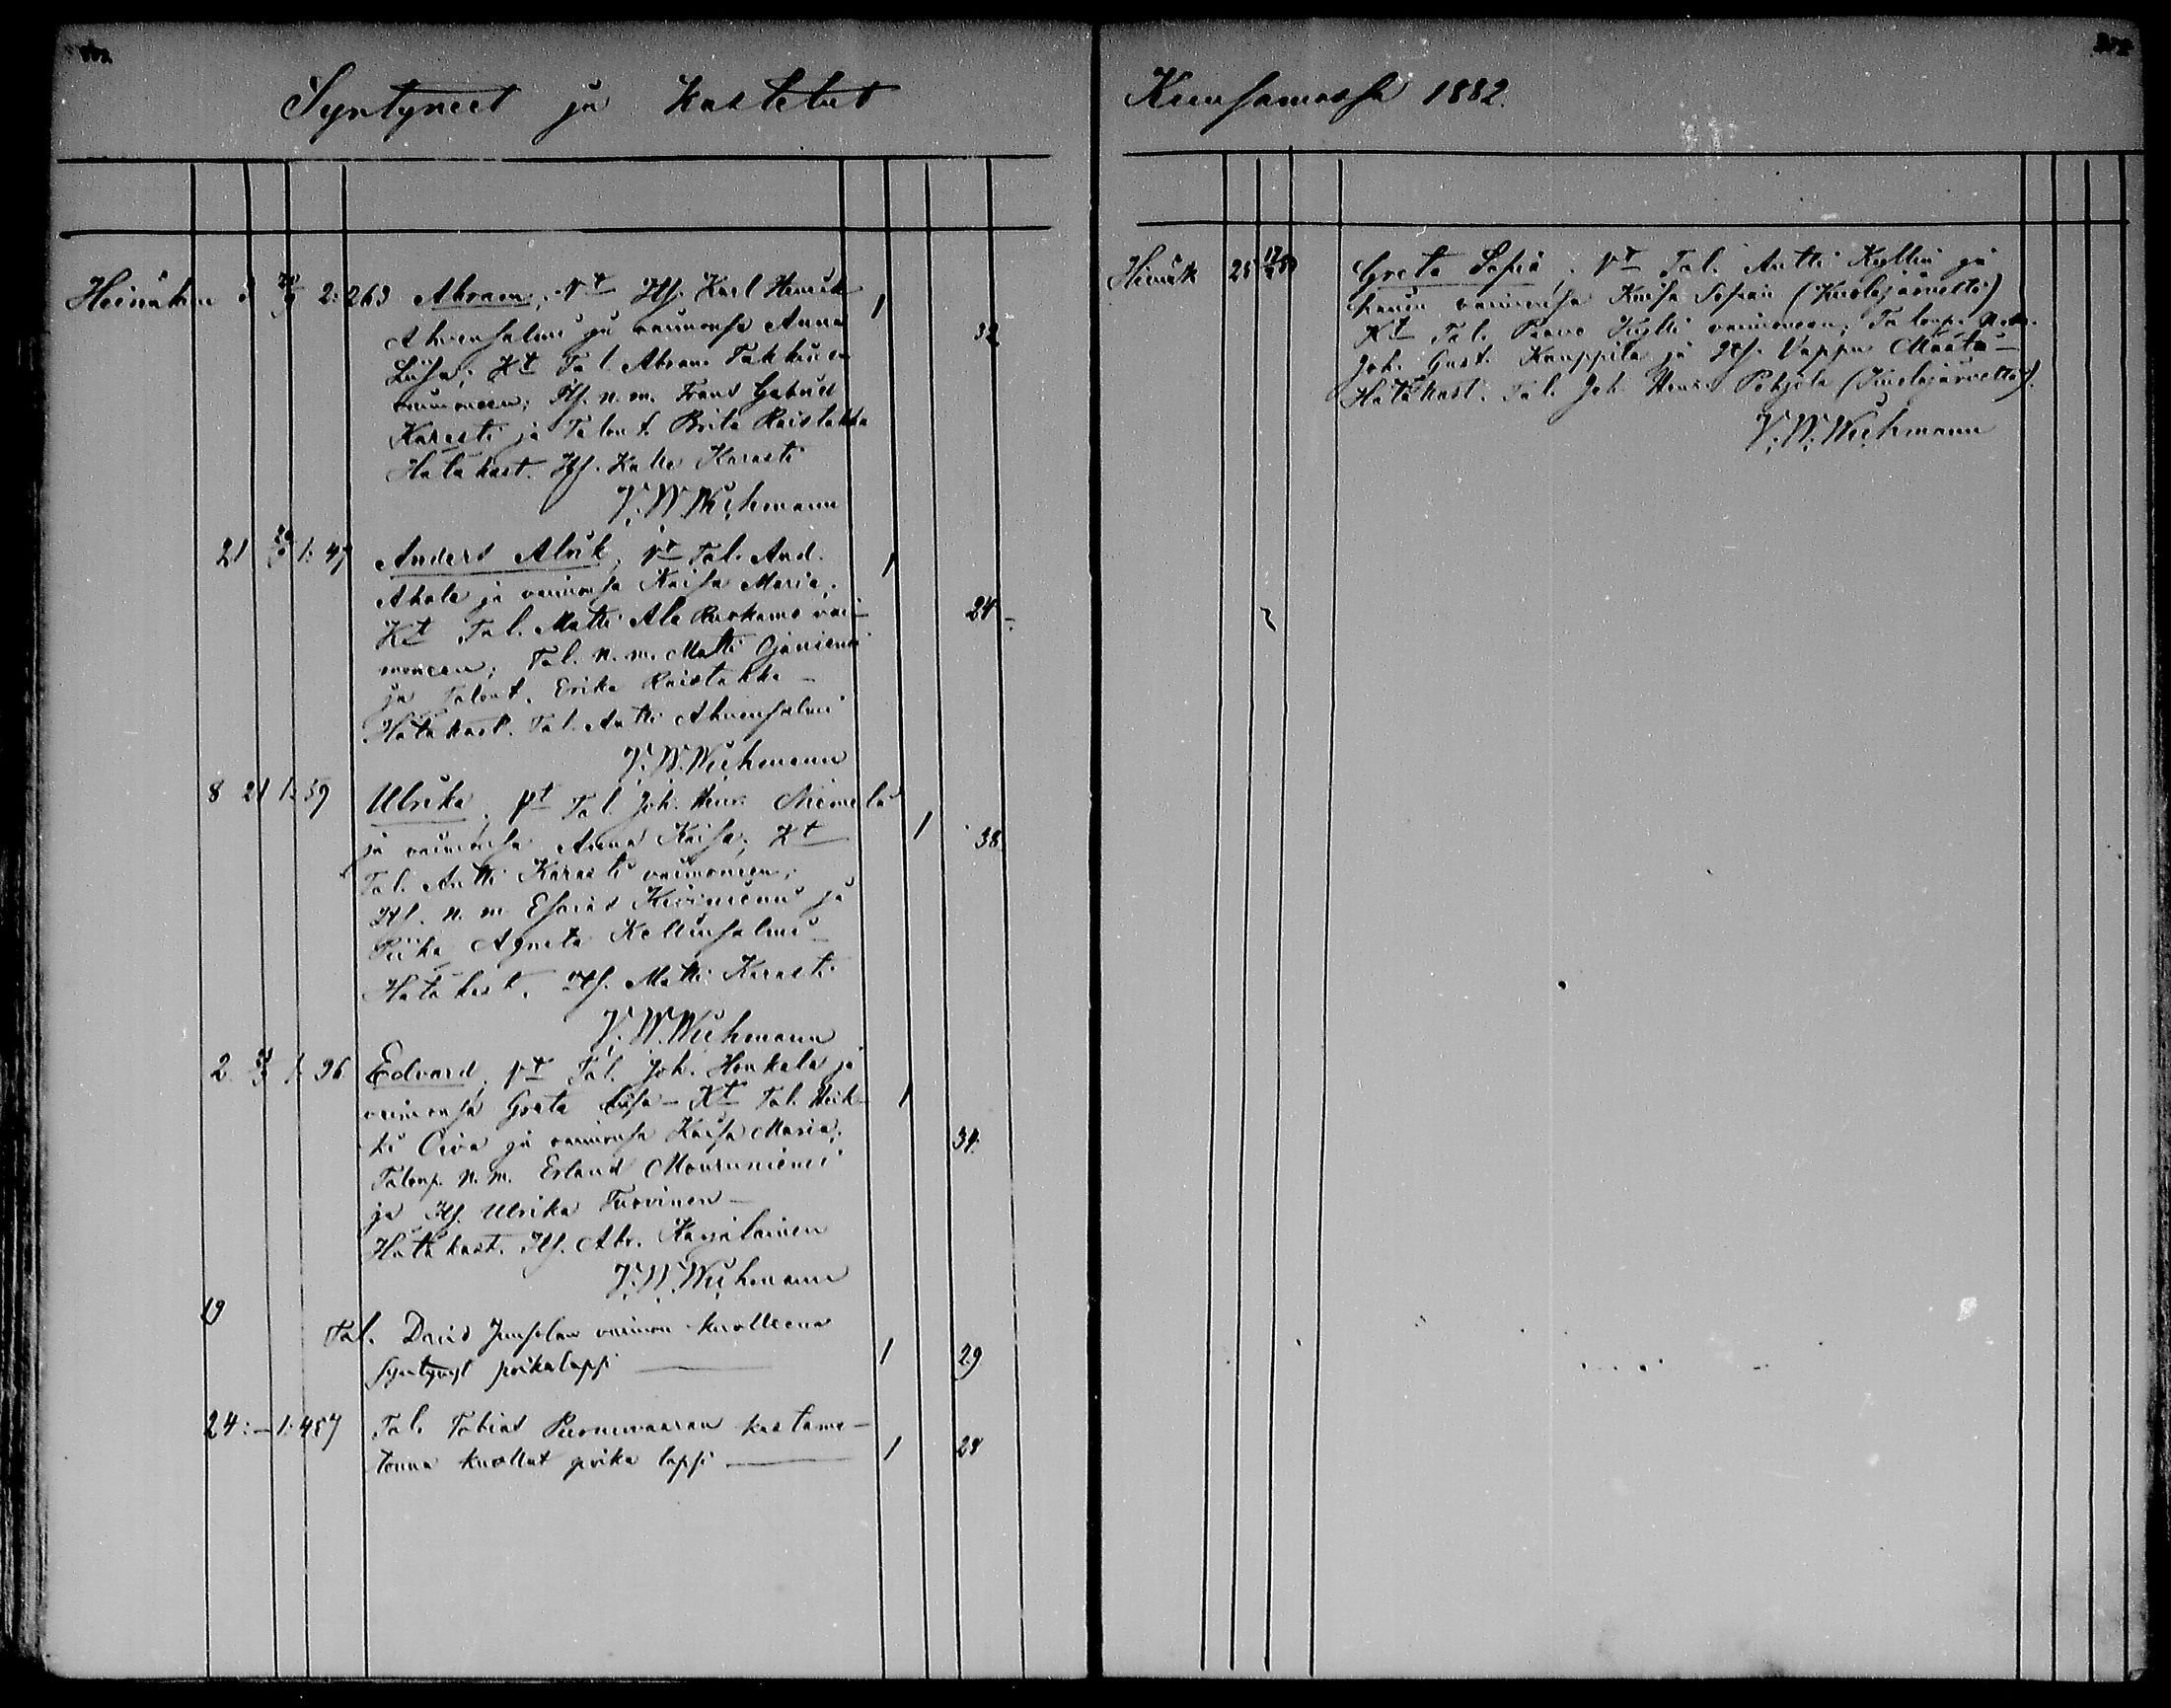 Syntyneet ja Kastetut
Kuusamossa 1882.
Heinäkuu 3 2:263 Abram; Vt Its. Karl Henrik
Ahvensalmi ja vaimonsa Anna
Liisa; Kt Tal. Abram Takkinen
vaimoneen; Its. n. m. Frans Gabriel
Karasti ja Talont. Brita Raistakka
Hätäkast. Its. Kalle Karasti
V. W. Wichmann
1
32
21 1:47 Anders Alrik; Vt Tal. And.
Ahola ja vaimonsa Kaisa Maria;
Kt Tal. Matti Ala Ruokamo vai-
moneen; Tal. n. m. Matti Ojaniemi
ja Talont. Erika Raistakka –
Hätäkast. Tal. Antti Ahvensalmi
V. W. Wichmann
1
24
8 21 1:59 Ulrika; Vt Tal. Joh. Henr. Niemelä
ja vaimonsa Anna Kaisa; Kt
Tal. Antti Karasti vaimoneen;
Its. n. m. Esaias Kiviniemi ja
Piika Agneta Kallunsalmi –
Hätäkast. Its. Matti Karasti
V. W. Wichmann
1
38
2 1:96 Edvard; Vt Tal. Joh. Honkala ja
vaimonsa Greta Liisa – Kt Tal. Heik-
ki Oiva ja vaimonsa Kaisa Maria;
Talonp. n. m. Erland Mouruniemi
ja Its. Ulrika Turvinen –
Hätäkast. Its. Abr. Karjalainen
V. W. Wichmann
1
34
19 Tal. David vaimon kuolleena
syntynyt poikalapsi
1 29
24 :– 1:457 Tal. Tobias kastama-
tonna kuollut poika lapsi
1 28
Heinäk 25 Greta Sofia; Vt Tal. Antti Kyllin ja
hänen vaimonsa Kaisa Sofian (Kuolajärvelta)
Kt Tal. Paavo Kylli vaimoneen; Talonp. n. m.
Joh. Gust. Kauppila ja Its. Vappu Määttä –
Hätäkast. Tal. Joh. Henr. Pohjola (Kuolajärvelta).
V. W. Wichmann